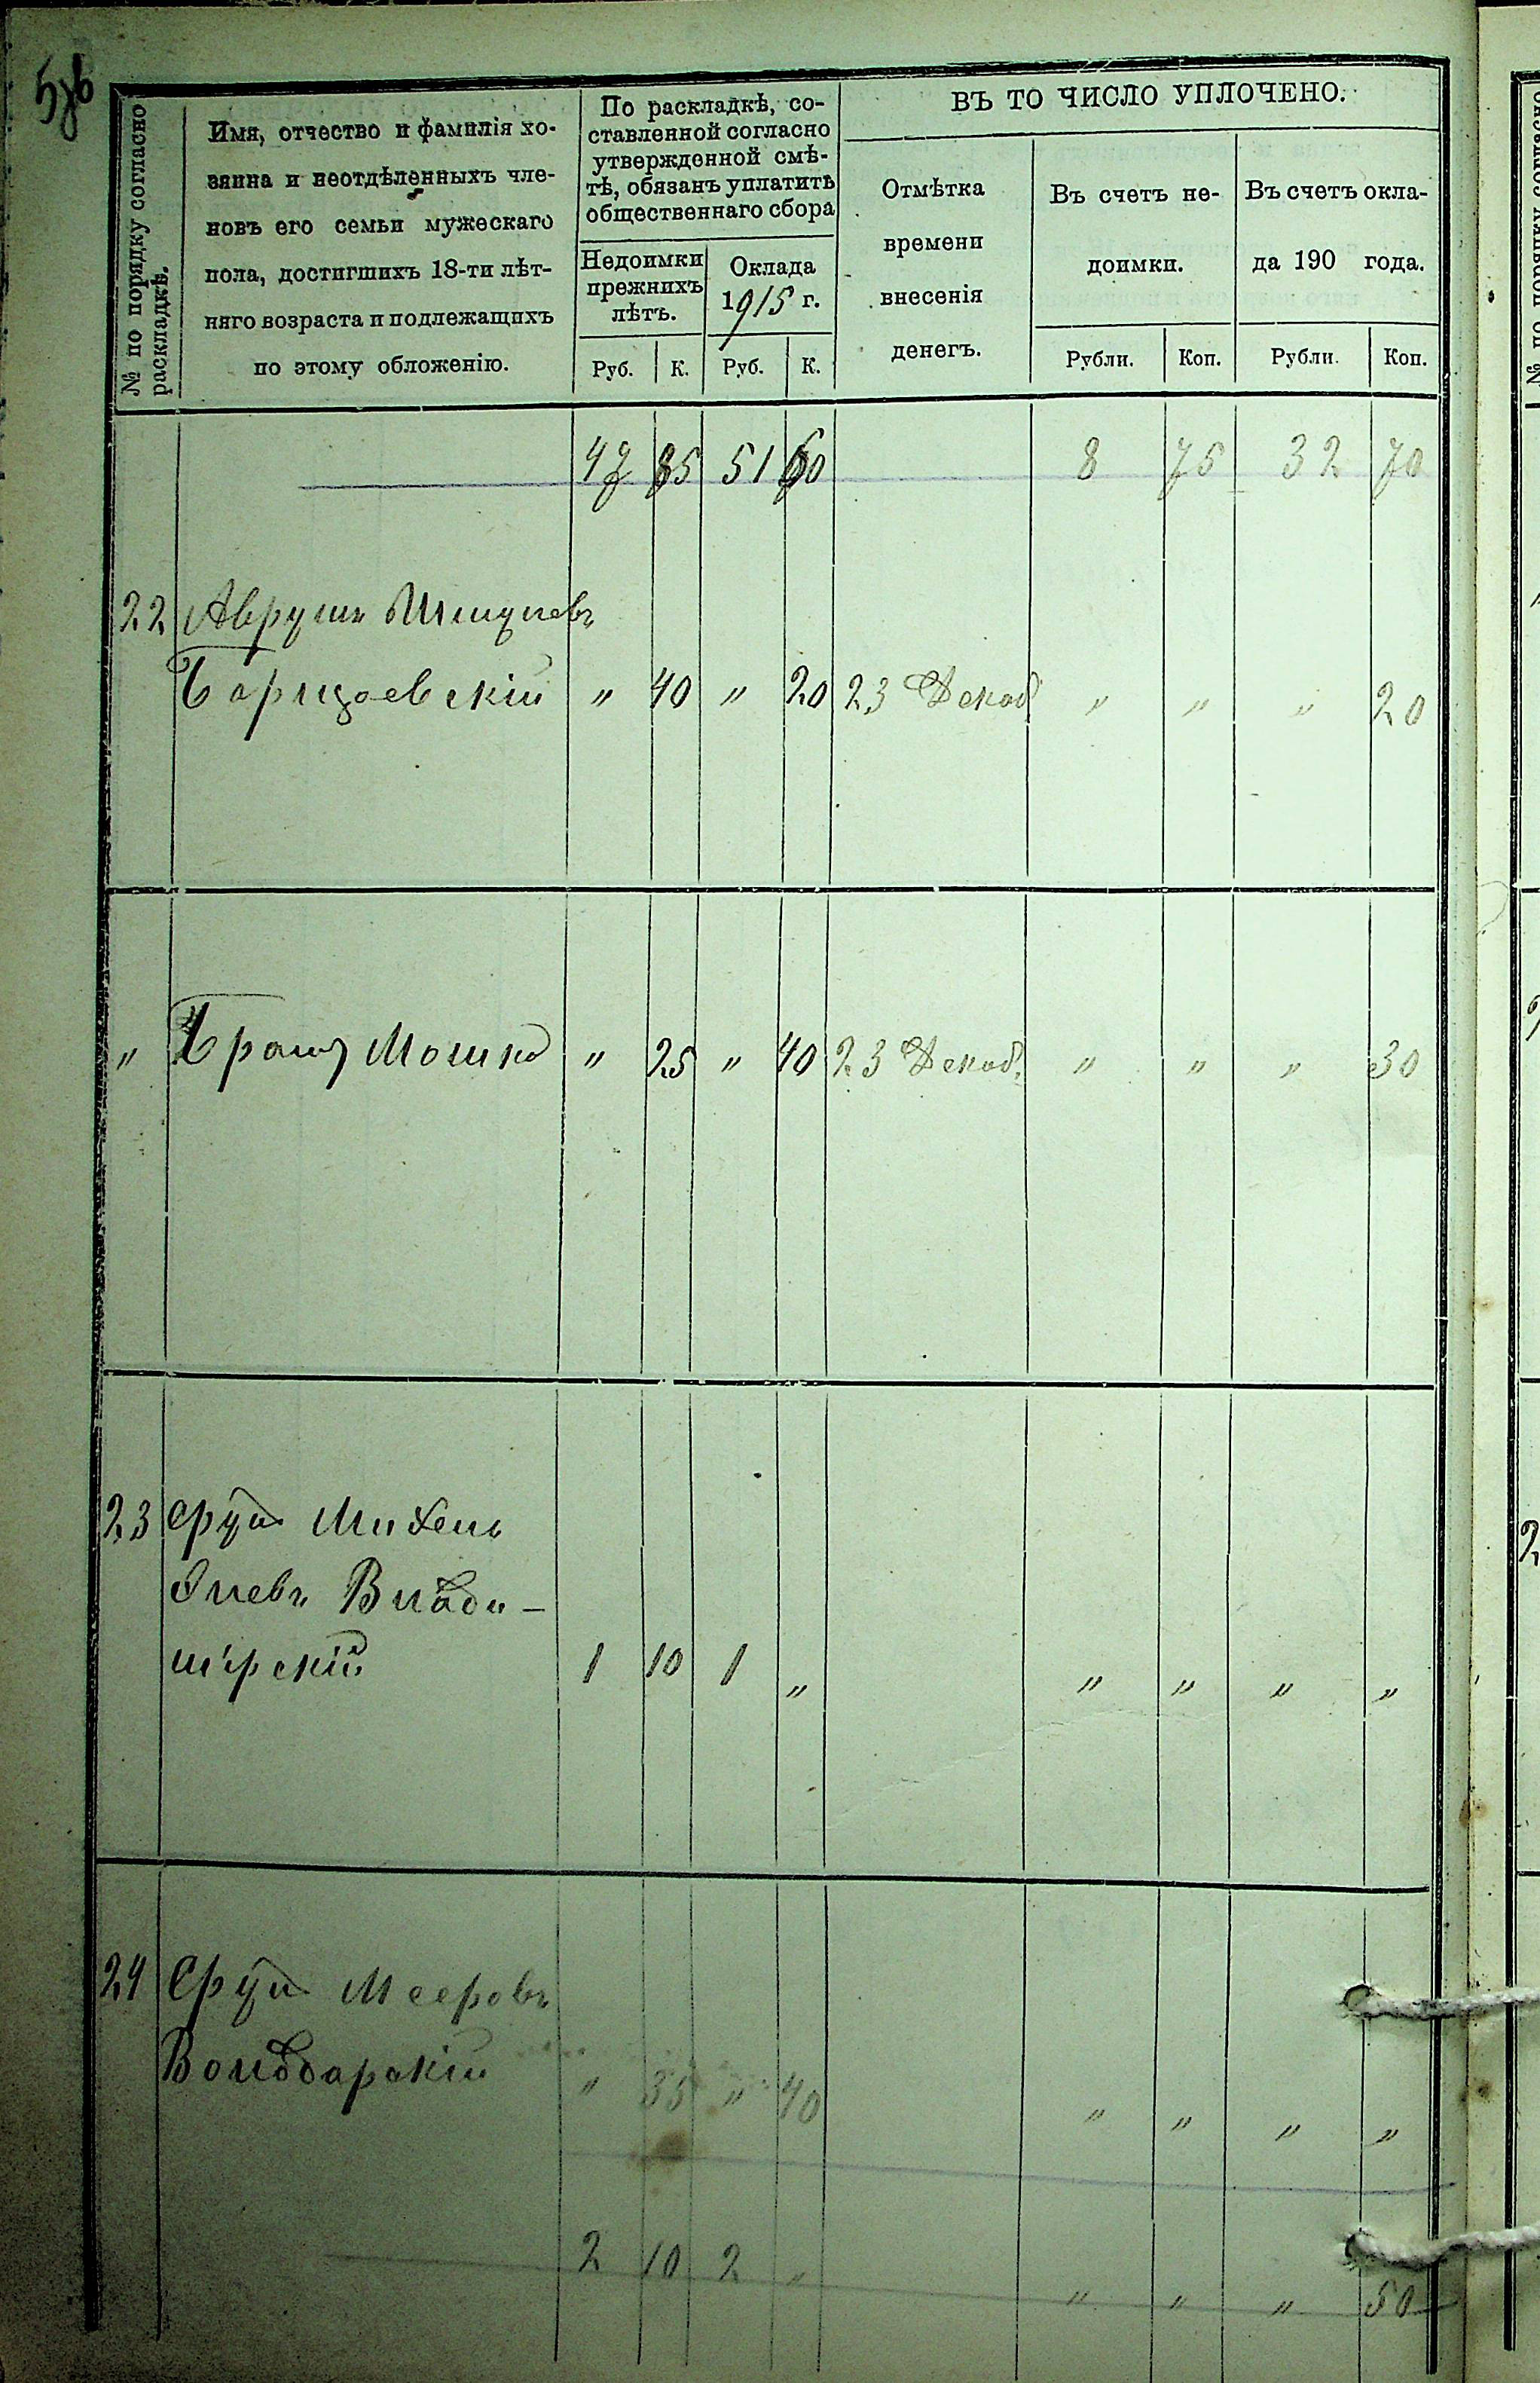 ВЪ ТО ЧИСЛО УПЛОЧЕНО.
№ по порядку согласно
раскладкѣ.
Имя, отчество и фамилія хо-
зяина и неотдѣленныхъ чле-
новъ его семьи мужескаго
пола, достигшихъ 18-ти лѣт-
няго возраста и подлежащихъ
по этому обложенію.
По раскладкѣ, со-
ставленной согласно
утвержденной смѣ-
тѣ, обязанъ уплатить
общественнаго сбора
Недоимки
прежнихъ
лѣтъ.
Оклада
1915 г.
Руб. К. Руб. К.
Отмѣтка
времени
внесенія
денегъ.
Въ счетъ не-
доимки.
Рубли. Коп.
Въ счетъ окла-
да 190 года.
Рубли. Коп.
47 85 51 60 8 75 32 70
22 Аврумъ
" 40 " 20 23 Декаб " " " 20
" Братъ Мошко " 25 " 40 23 Декаб. " " " 30
23 Сруль Михель
Влади-
мірскій 1 10 1 " " " " "
24 Сруль Мееровъ
Володарскій " 35 " 40 " " " "
2 10 2 " " " " 50